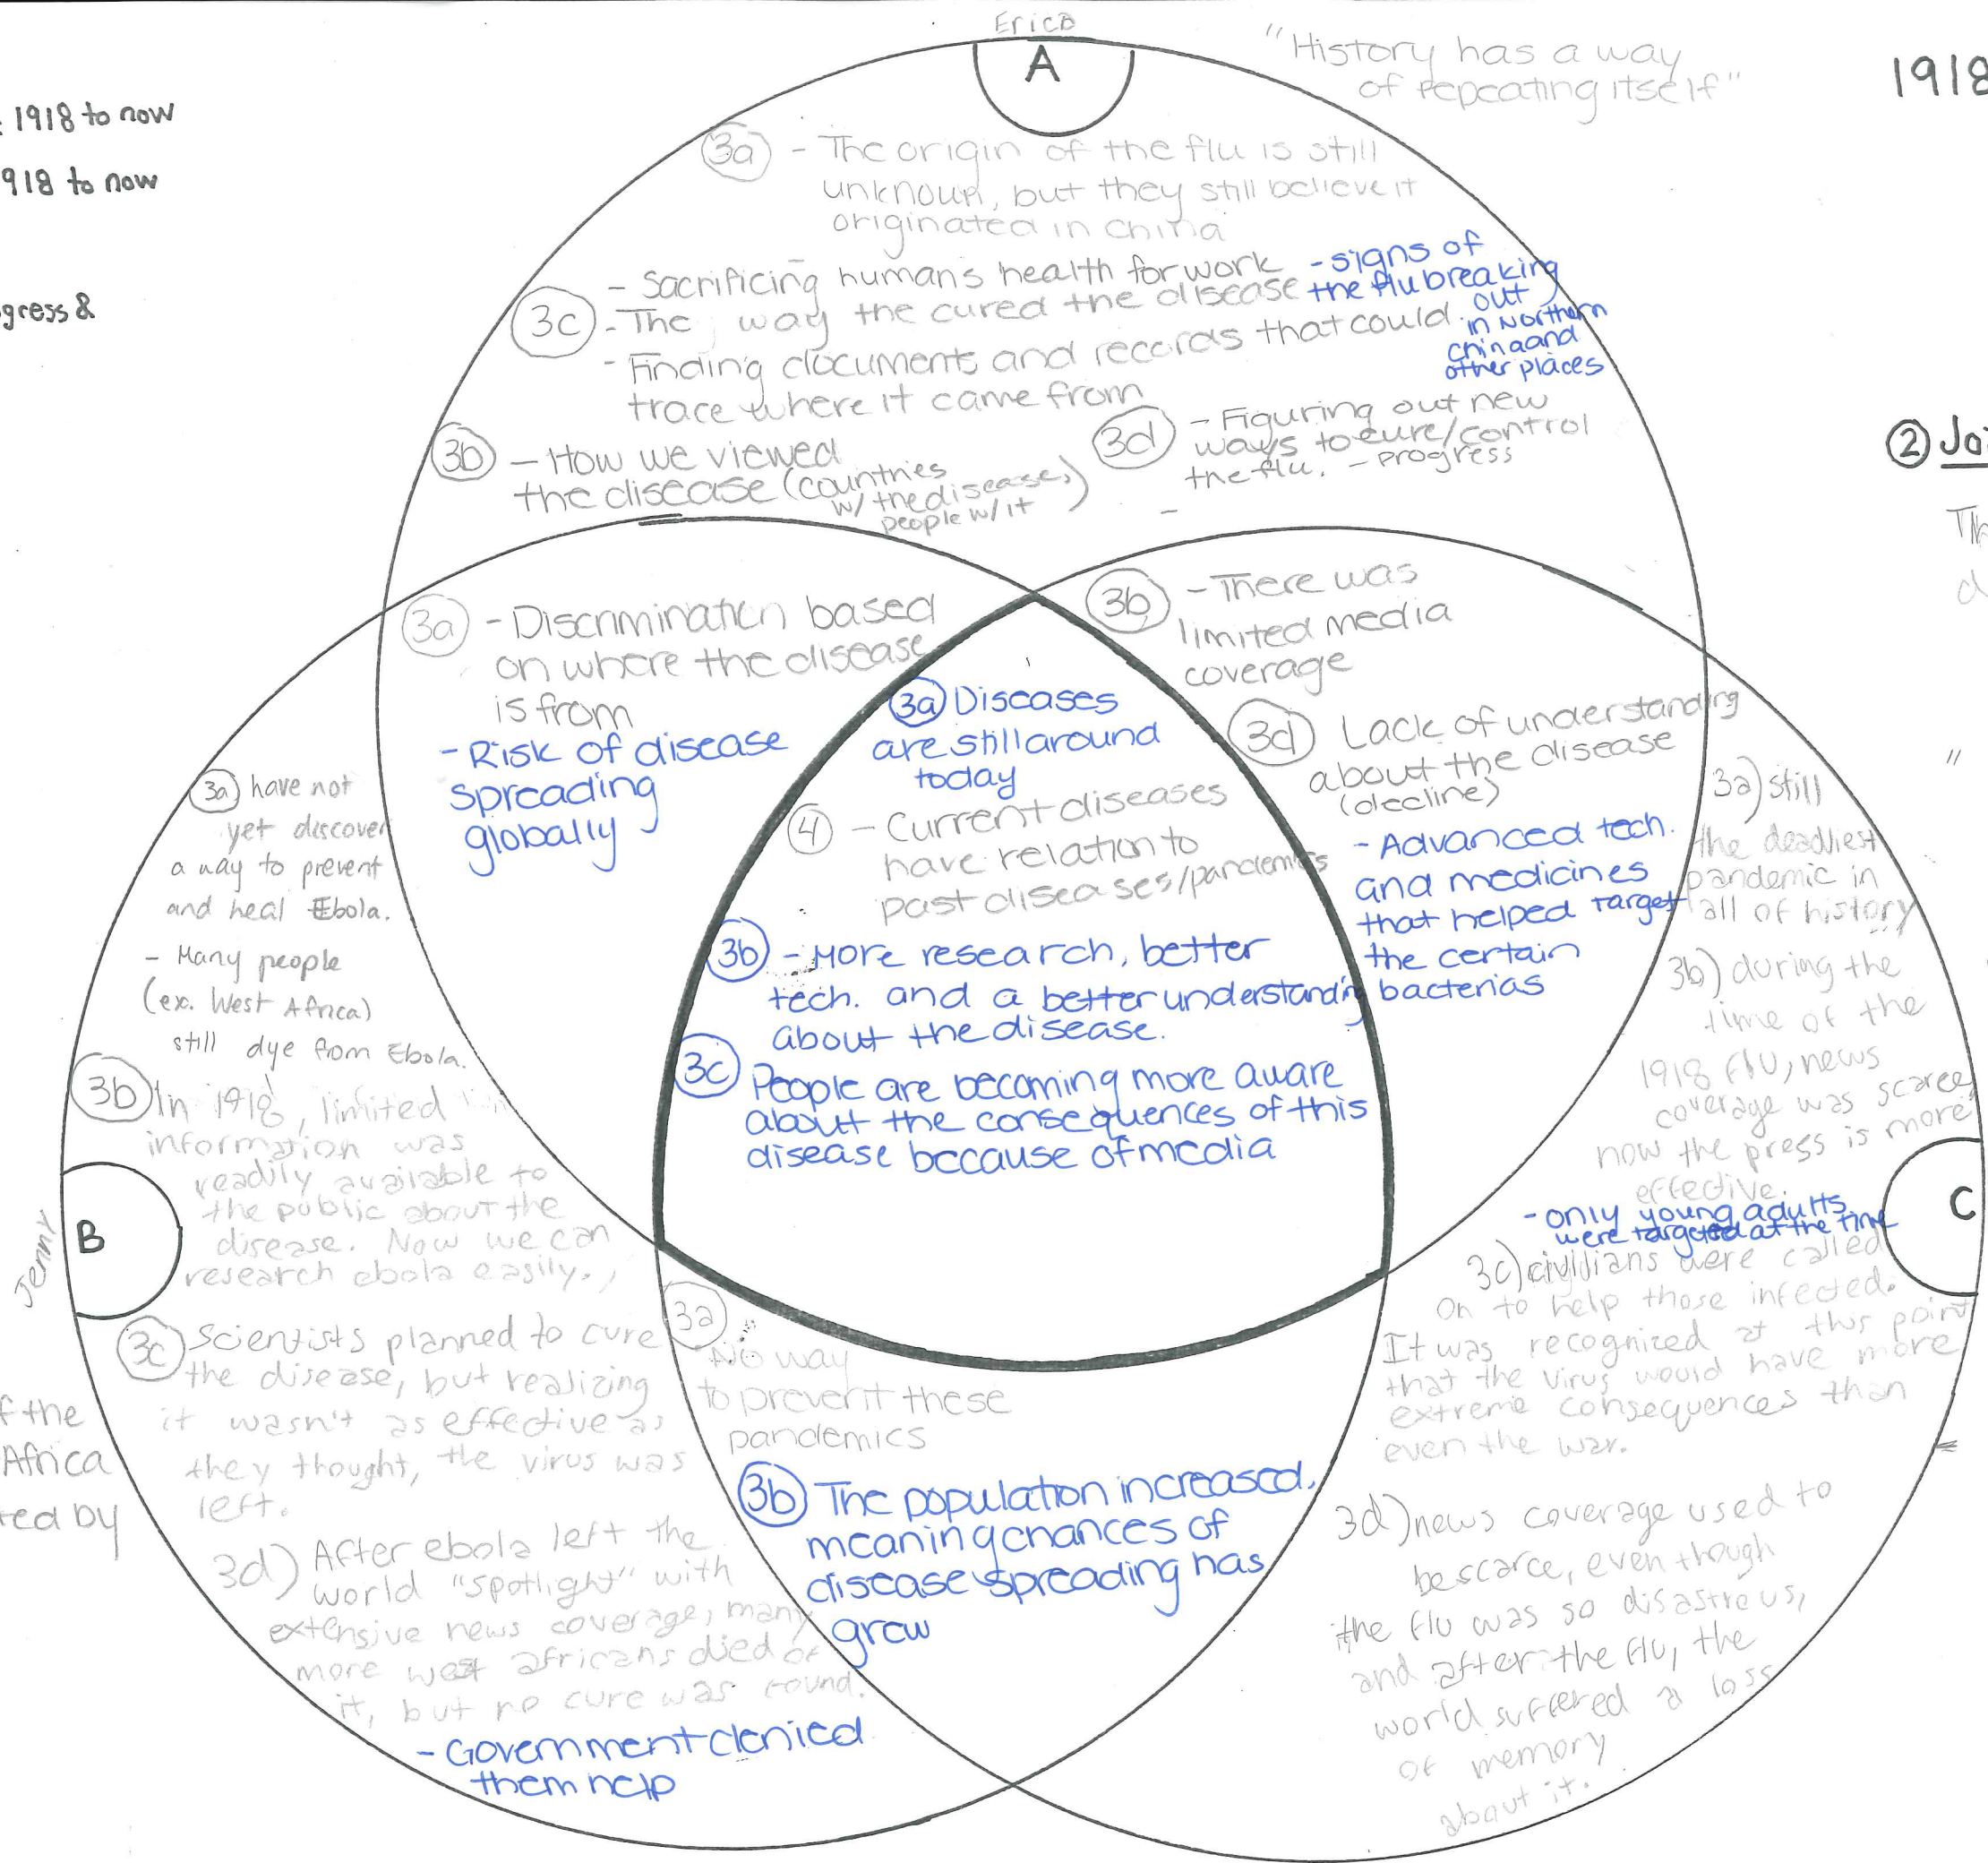 Erica
A
"History has a way
of repeating itself"
1918
: 1918 to now
918 to now
gress &
3a - The origin of the flu is still
unknown, but they still believe it
originated in china
- Sacrificing humans health for work
3c - The way the cured the disease
- Finding documents and records that could
trace where it came from
- signs of
the flu breaking
out
in Northern
china and
other places
3b - How we viewed
the disease (countries
w/ the diseases,
people w/ it)
3d - Figuring out new
ways to cure/control
the flu. - progress
② Ja
Th
d
3a - Discrimination based
on where the disease
is from
- Risk of disease
spreading
globally
3b - There was
limited media
coverage
3d Lack of understanding
about the disease
(decline)
- Advanced tech.
and medicines
that helped target
the certain
bacterias
3a Diseases
are still around
today
4 - Current diseases
have relation to
past diseases/pandemics
3b - More research, better
tech. and a better understanding
about the disease.
3c People are becoming more aware
about the consequences of this
disease because of media
3a have not
yet discover
a way to prevent
and heal Ebola.
- Many people
(ex. West Africa)
still dye from Ebola.
3b In 1918, limited
information was
readily available to
the public about the
disease. Now we can
research ebola easily.
B
Jenny
3c Scientists planned to cure
the disease, but realizing
it wasn't as effective as
they thought, the virus was
left.
3d) After ebola left the
world "spotlight" with
extensive news coverage, many
more west africans died of
it, but no cure was found.
- Government denied
them help
f the
Africa
ted by
3a
No way
to prevent these
pandemics
3b The population increased,
meaning chances of
disease spreading has
grew
"
3a) still
the deadliest
pandemic in
all of history
3b) during the
time of the
1918 flu, news
coverage was scarce
now the press is more
effective.
- only young adults
were targeted at the time
C
3c) civilians were called
on to help those infected.
It was recognized at this point
that the virus would have more
extreme consequences than
even the war.
3d) news coverage used to
be scarce, even though
the flu was so disastrous,
and after the flu, the
world suffered a loss
of memory
about it.